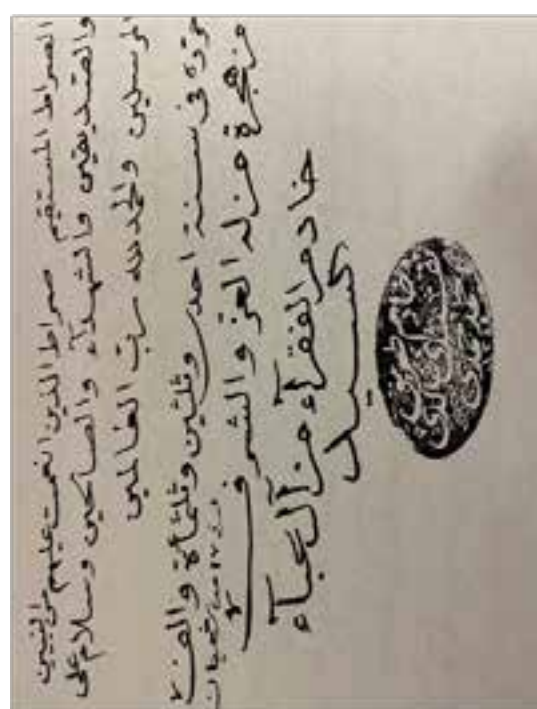 الصراط المستقيم صراط الذين انعمت عليهم من النبيين
والصديقين والشهدآء والصالحين وسلام على
المرسلين والحمد لله رب العالمين
حرّره فى سنة احدى وثلثين وثلثمائة والف
من هجرة من له العز والشرف
شعبان
خادم الفقرآء من آل عبآء